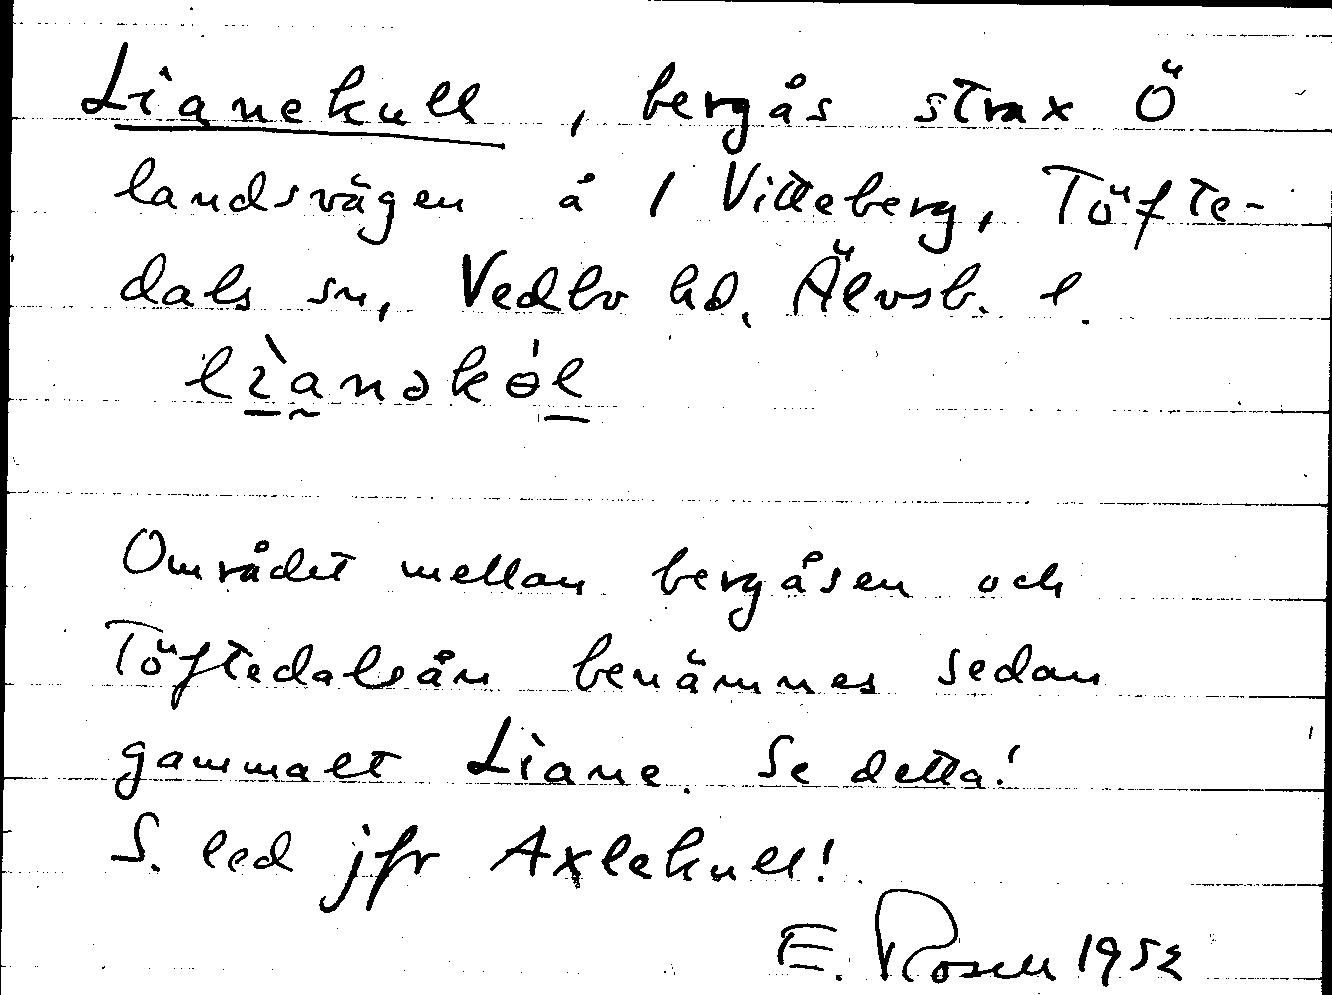 Lianekull, bergås strax Ö
landsvägen å 1 Vitteberg, Töfte-
dals sn, Vedbo hd. Älvsb. l.
lìanəkɵ́l
Området mellan bergåsen och
Töftedalsån benämnes sedan
gammalt Liane. Se detta!
S. led jfr Axlekull!
E. Rosell 1952